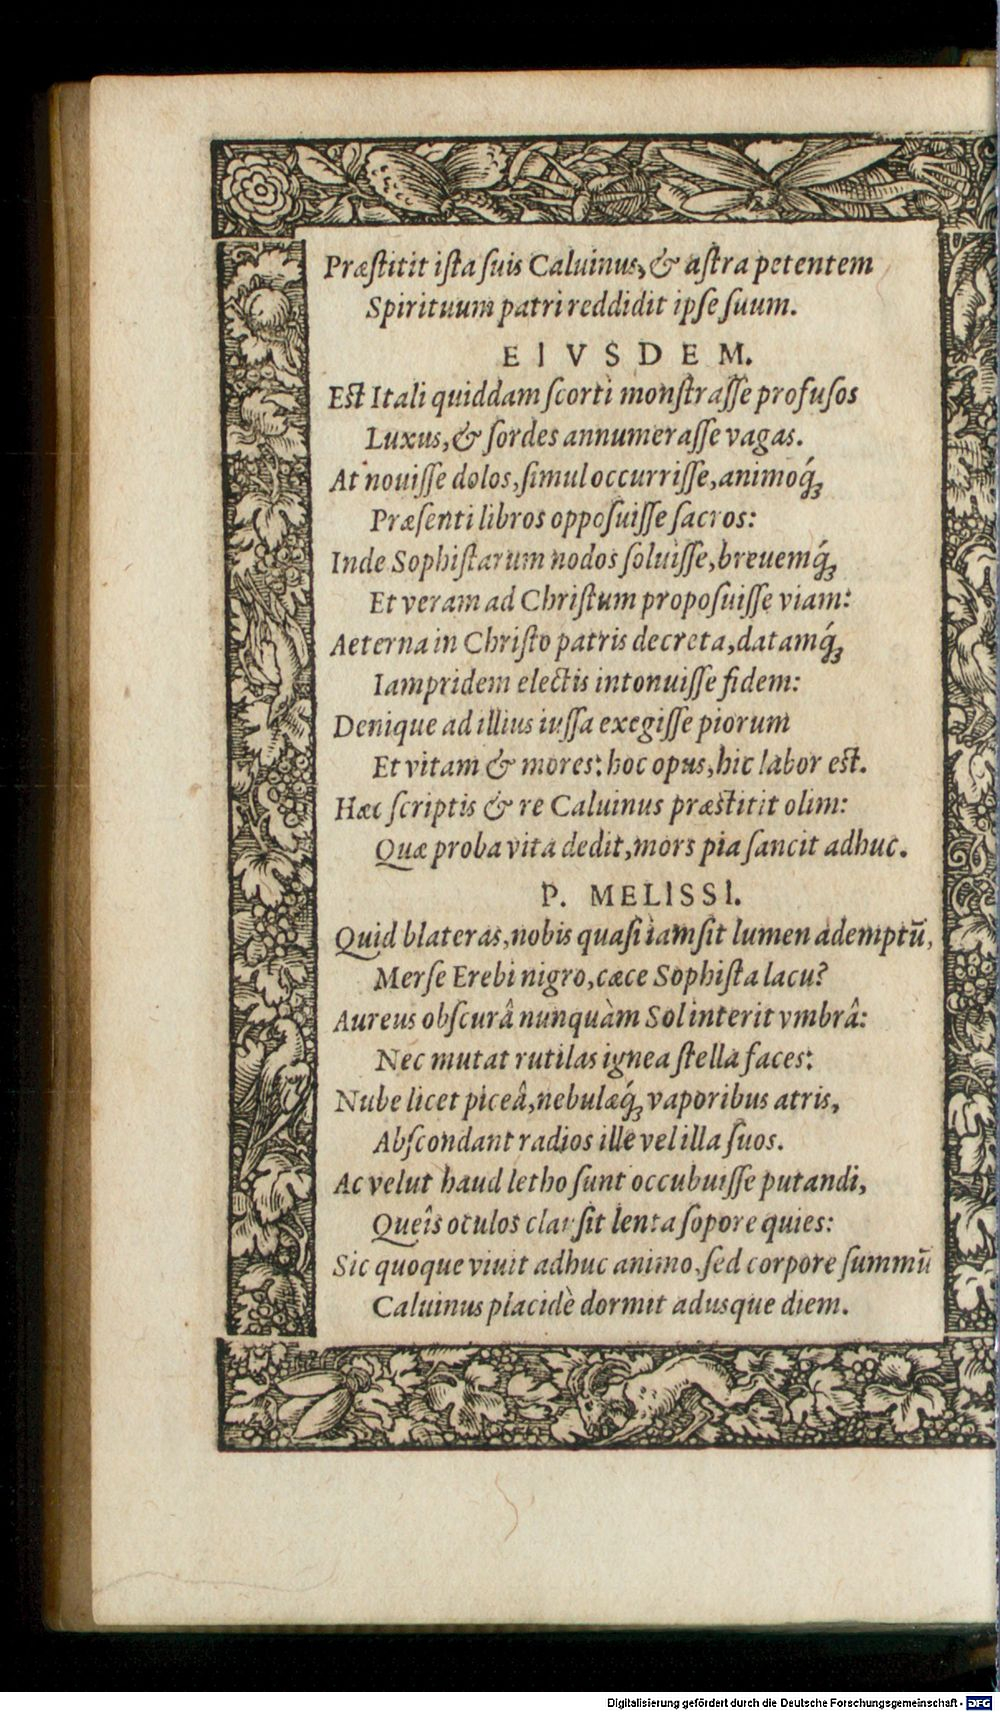 Præſtitit iſta ſuis Caluinus, & aſtra petentem
Spirituum patri reddidit ipſe ſuum.
EIVSDEM.
Eſt Itali quiddam ſcorti monſtraſſe profuſos
Luxus, & ſordes annumeraſſe vagas.
At nouiſſe dolos, ſimul occurriſſe, animoq́ꝫ
Præſenti libros oppoſuiſſe ſacros:
Inde Sophiſtarum nodos ſoluiſſe, breuemq́ꝫ
Et veram ad Chriſtum propoſuiſſe viam:
Aeterna in Chriſto patris decreta, datamq́ꝫ
Iampridem electis intonuiſſe fidem:
Denique ad illius iuſſa exegiſſe piorum
Et vitam & mores: hoc opus, hic labor eſt.
Hæc ſcriptis & re Caluinus præſtitit olim:
Quæ proba vita dedit, mors pia ſancit adhuc.
P. MELISSI.
Quid blateras, nobis quaſi iam ſit lumen ademptū,
Merſe Erebi nigro, cæce Sophiſta lacu?
Aureus obſcurâ nunquàm Sol interit vmbrâ:
Nec mutat rutilas ignea ſtella faces:
Nube licet piceâ, nebulæq́ꝫ vaporibus atris,
Abſcondant radios ille vel illa ſuos.
Ac velut haud letho ſunt occubuiſſe putandi,
Queîs oculos clauſit lenta ſopore quies:
Sic quoque viuit adhuc animo, ſed corpore ſummū
Caluinus placidè dormit adusque diem.
Digitalisierung gefördert durch die Deutsche Forschungsgemeinschaft - DFG